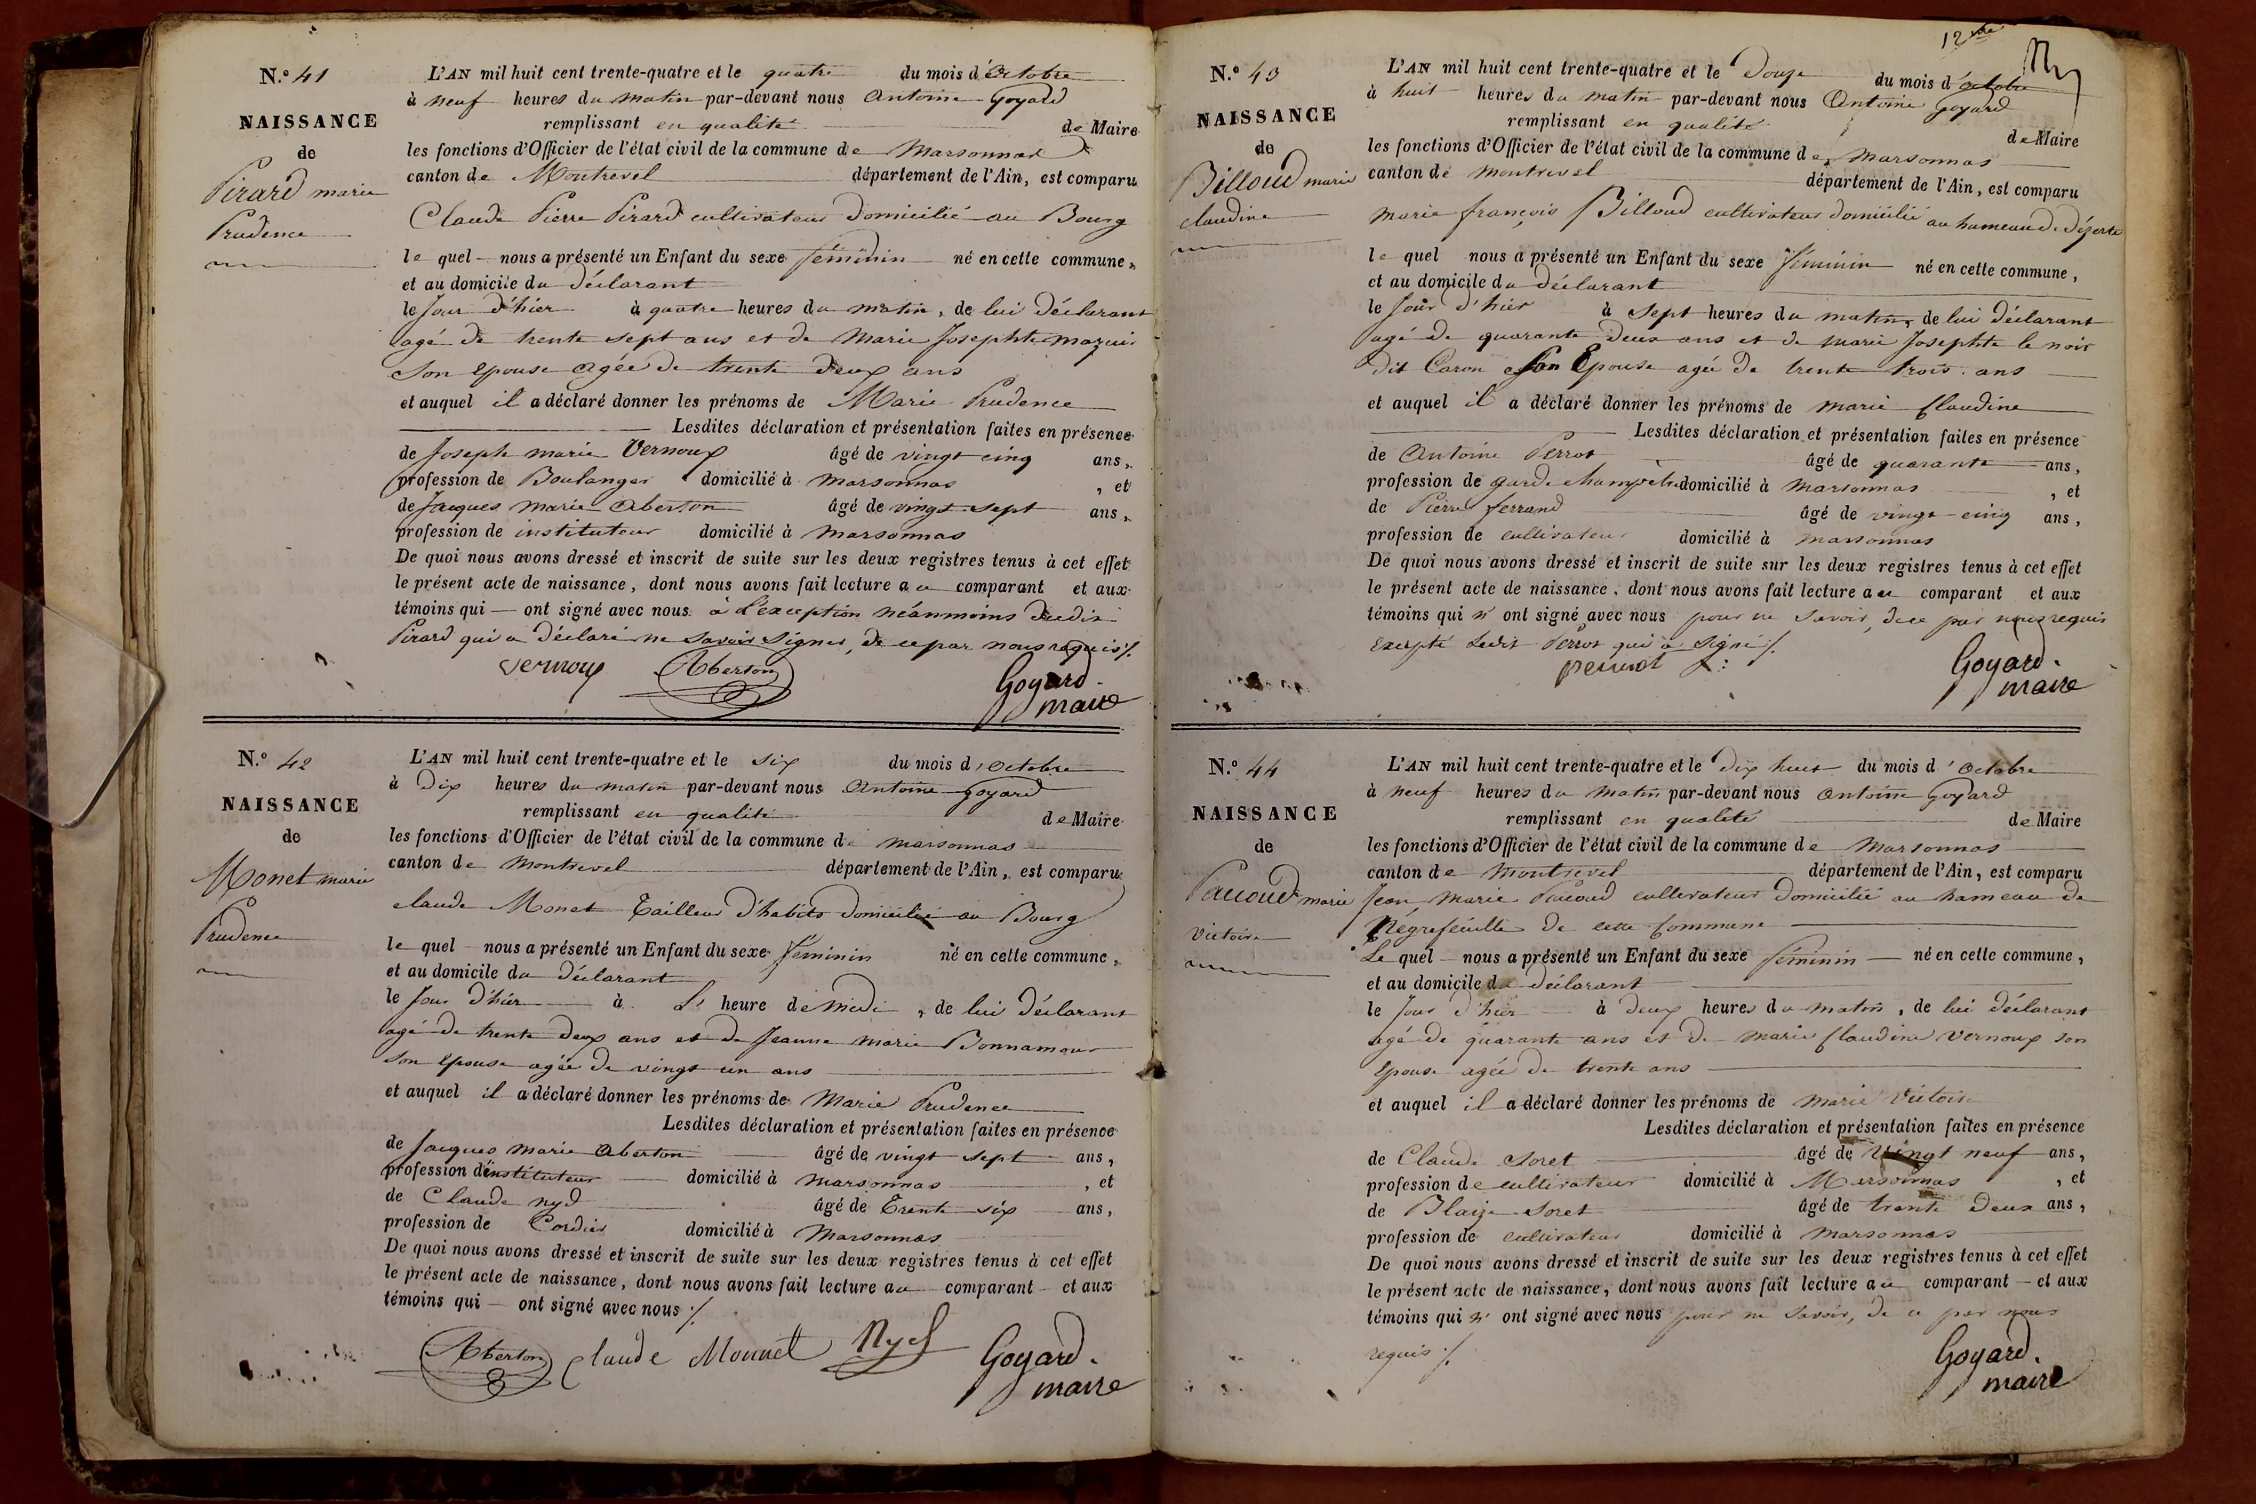 N.º 41
NAISSANCE
de
Pirard marie
Prudence
L'AN mil huit cent trente-quatre et le quatre du mois d'Octobre
à neuf heures du matin par-devant nous Antoine Goyard
remplissant en qualité de Maire
les fonctions d'Officier de l'état civil de la commune de Marsonnas
canton de Montrevel département de l'Ain, est comparu
Claude Pierre Pirard cultivateur domicilié au Bourg
le quel nous a présenté un Enfant du sexe féminin né en cette commune,
et au domicile du déclarant
le Jour d'hier à quatre heures du matin, de lui déclarant
agé de trente sept ans et de Marie Josephte mazuir
son epouse agée de trente deux ans
et auquel il a déclaré donner les prénoms de Marie Prudence
Lesdites déclaration et présentation faites en présence
de Joseph marie Vernoux âgé de vingt cinq ans,
profession de Boulanger domicilié à marsonnas, et
de Jacques Marie Aberton âgé de vingt sept ans,
profession de instituteur domicilié à marsonnas
De quoi nous avons dressé et inscrit de suite sur les deux registres tenus à cet effet
le présent acte de naissance, dont nous avons fait lecture au comparant et aux
témoins qui ont signé avec nous à l'exception néanmoins dudit
Pirard qui a déclaré ne savoir signer, de ce par nous requis ./.
vernoux Aberton Goyard
maire
N.º 42
NAISSANCE
de
Monet marie
Prudence
L'AN mil huit cent trente-quatre et le six du mois d'Octobre
à Dix heures du matin par-devant nous Antoine Goyard
remplissant en qualité de Maire
les fonctions d'Officier de l'état civil de la commune de marsonnas
canton de montrevel département de l'Ain, est comparu
claude Monet Tailleur d'habits domicilié au Bourg
le quel nous a présenté un Enfant du sexe féminin né en cette commune,
et au domicile du déclarant
le Jour d'hier à L' heure de midi, de lui déclarant
agé de trente deux ans et de Jeanne marie Bonnamour
son epouse agée de vingt un ans
et auquel il a déclaré donner les prénoms de Marie Prudence
Lesdites déclaration et présentation faites en présence
de Jacques Marie Aberton âgé de vingt sept ans,
profession d'instituteur domicilié à marsonnas, et
de Claude nyd âgé de Trente six ans,
profession de Cordier domicilié à Marsonnas
De quoi nous avons dressé et inscrit de suite sur les deux registres tenus à cet effet
le présent acte de naissance, dont nous avons fait lecture au comparant et aux
témoins qui ont signé avec nous ./.
Aberton Claude Monnet Nyd Goyard.
maire
12me
N.º 43
NAISSANCE
de
Billoud marie
claudine
L'AN mil huit cent trente-quatre et le Douze du mois d'octobre
à huit heures du matin par-devant nous Antoine Goyard
remplissant en qualité de Maire
les fonctions d'Officier de l'état civil de la commune de marsonnas
canton de montrevel département de l'Ain, est comparu
marie françois Billoud cultivateur domicilié au hameau de déserte
le quel nous a présenté un Enfant du sexe féminin né en cette commune,
et au domicile du déclarant
le Jour d'hier à sept heures du matin, de lui déclarant
agé de quarante deux ans et de marie Josephte le noir
dit Caron son Epouse agée de trente trois ans
et auquel il a déclaré donner les prénoms de marie Claudine
Lesdites déclaration et présentation faites en présence
de Antoine Perrot âgé de quarante ans,
profession de garde champêtre domicilié à marsonnas, et
de Pierre ferrand âgé de vingt cinq ans,
profession de cultivateur domicilié à marsonnas
De quoi nous avons dressé et inscrit de suite sur les deux registres tenus à cet effet
le présent acte de naissance, dont nous avons fait lecture au comparant et aux
témoins qui n' ont signé avec nous pour ne savoir, de ce par nous requis
excepté Ledit Perrot qui a signé ./.
perrot Goyard.
maire
N.º 44
NAISSANCE
de
Pacoud marie
victoire
L'AN mil huit cent trente-quatre et le dix huit du mois d'Octobre
à neuf heures du matin par-devant nous Antoine Goyard
remplissant en qualité de Maire
les fonctions d'Officier de l'état civil de la commune de Marsonnas
canton de montrevel département de l'Ain, est comparu
Jean Marie Pacoud cultivateur domicilié au hameau de
Négrefeuille de cette commune
Le quel nous a présenté un Enfant du sexe féminin né en cette commune,
et au domicile du déclarant
le Jour d'hier à deux heures du matin, de lui déclarant
agé de quarante ans et de marie Claudine vernoux son
epouse agée de trente ans
et auquel il a déclaré donner les prénoms de marie Victoire
Lesdites déclaration et présentation faites en présence
de Claude Soret âgé de vingt neuf ans,
profession de cultivateur domicilié à Marsonnas, et
de Blaize Soret âgé de trente deux ans,
profession de cultivateur domicilié à marsonnas
De quoi nous avons dressé et inscrit de suite sur les deux registres tenus à cet effet
le présent acte de naissance, dont nous avons fait lecture au comparant et aux
témoins qui n' ont signé avec nous pour ne savoir, de ce par nous
requis ./.
Goyard.
maire